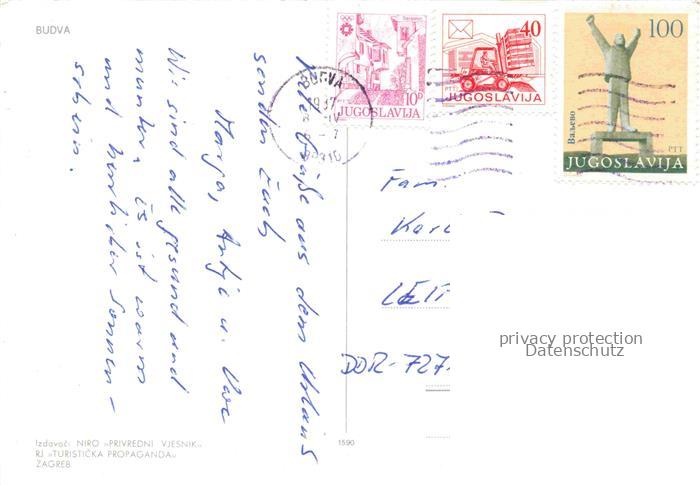 BUDVA
Liebe Grüße aus dem Urlaub
senden Euch
Margo, Antje u. Uwe
Wir sind alle gesund und
munter, es ist warm
und herrlicher Sonnen-
schein.
Sarajevo
10⁰
JUGOSLAVIJA
40
PTT
JUGOSLAVIJA
100
Ваљево
PTT
JUGOSLAVIJA
BUDVA
Fam.
DDR-727
privacy protection
Datenschutz
Izdavač: NIRO »PRIVREDNI VJESNIK«
RJ »TURISTIČKA PROPAGANDA«
ZAGREB
1590